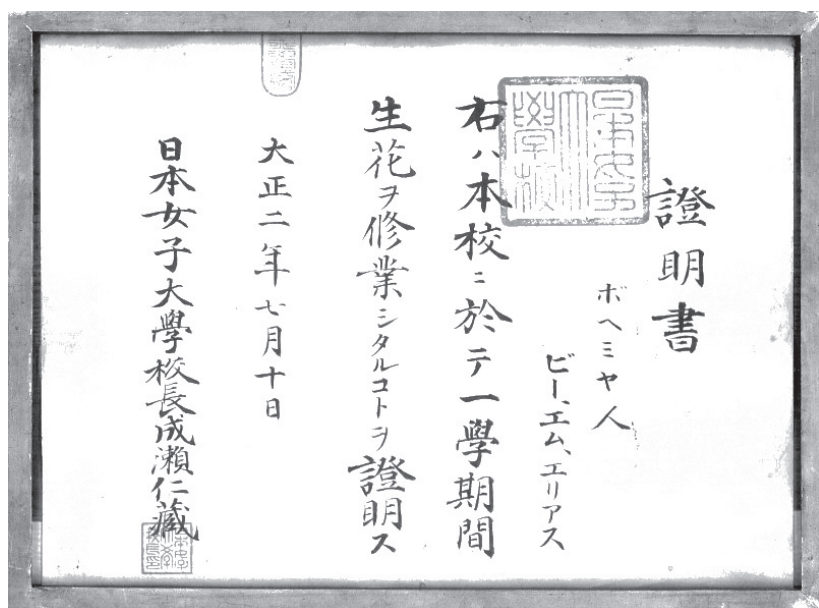 證明書
ボヘミヤ人
ビー、エム、エリアス
右ハ本校ニ於テ一學期間
生花ヲ修業シタルコトヲ證明ス
大正二年七月十日
日本女子大學校長成瀬仁藏
日本女子大學校